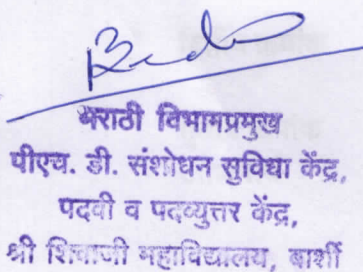 मराठी विभागप्रमुख
पीएच. डी. संशोधन सुविधा केंद्र,
पदवी व पदव्युत्तर केंद्र,
श्री शिवाजी महाविद्यालय, बार्शी